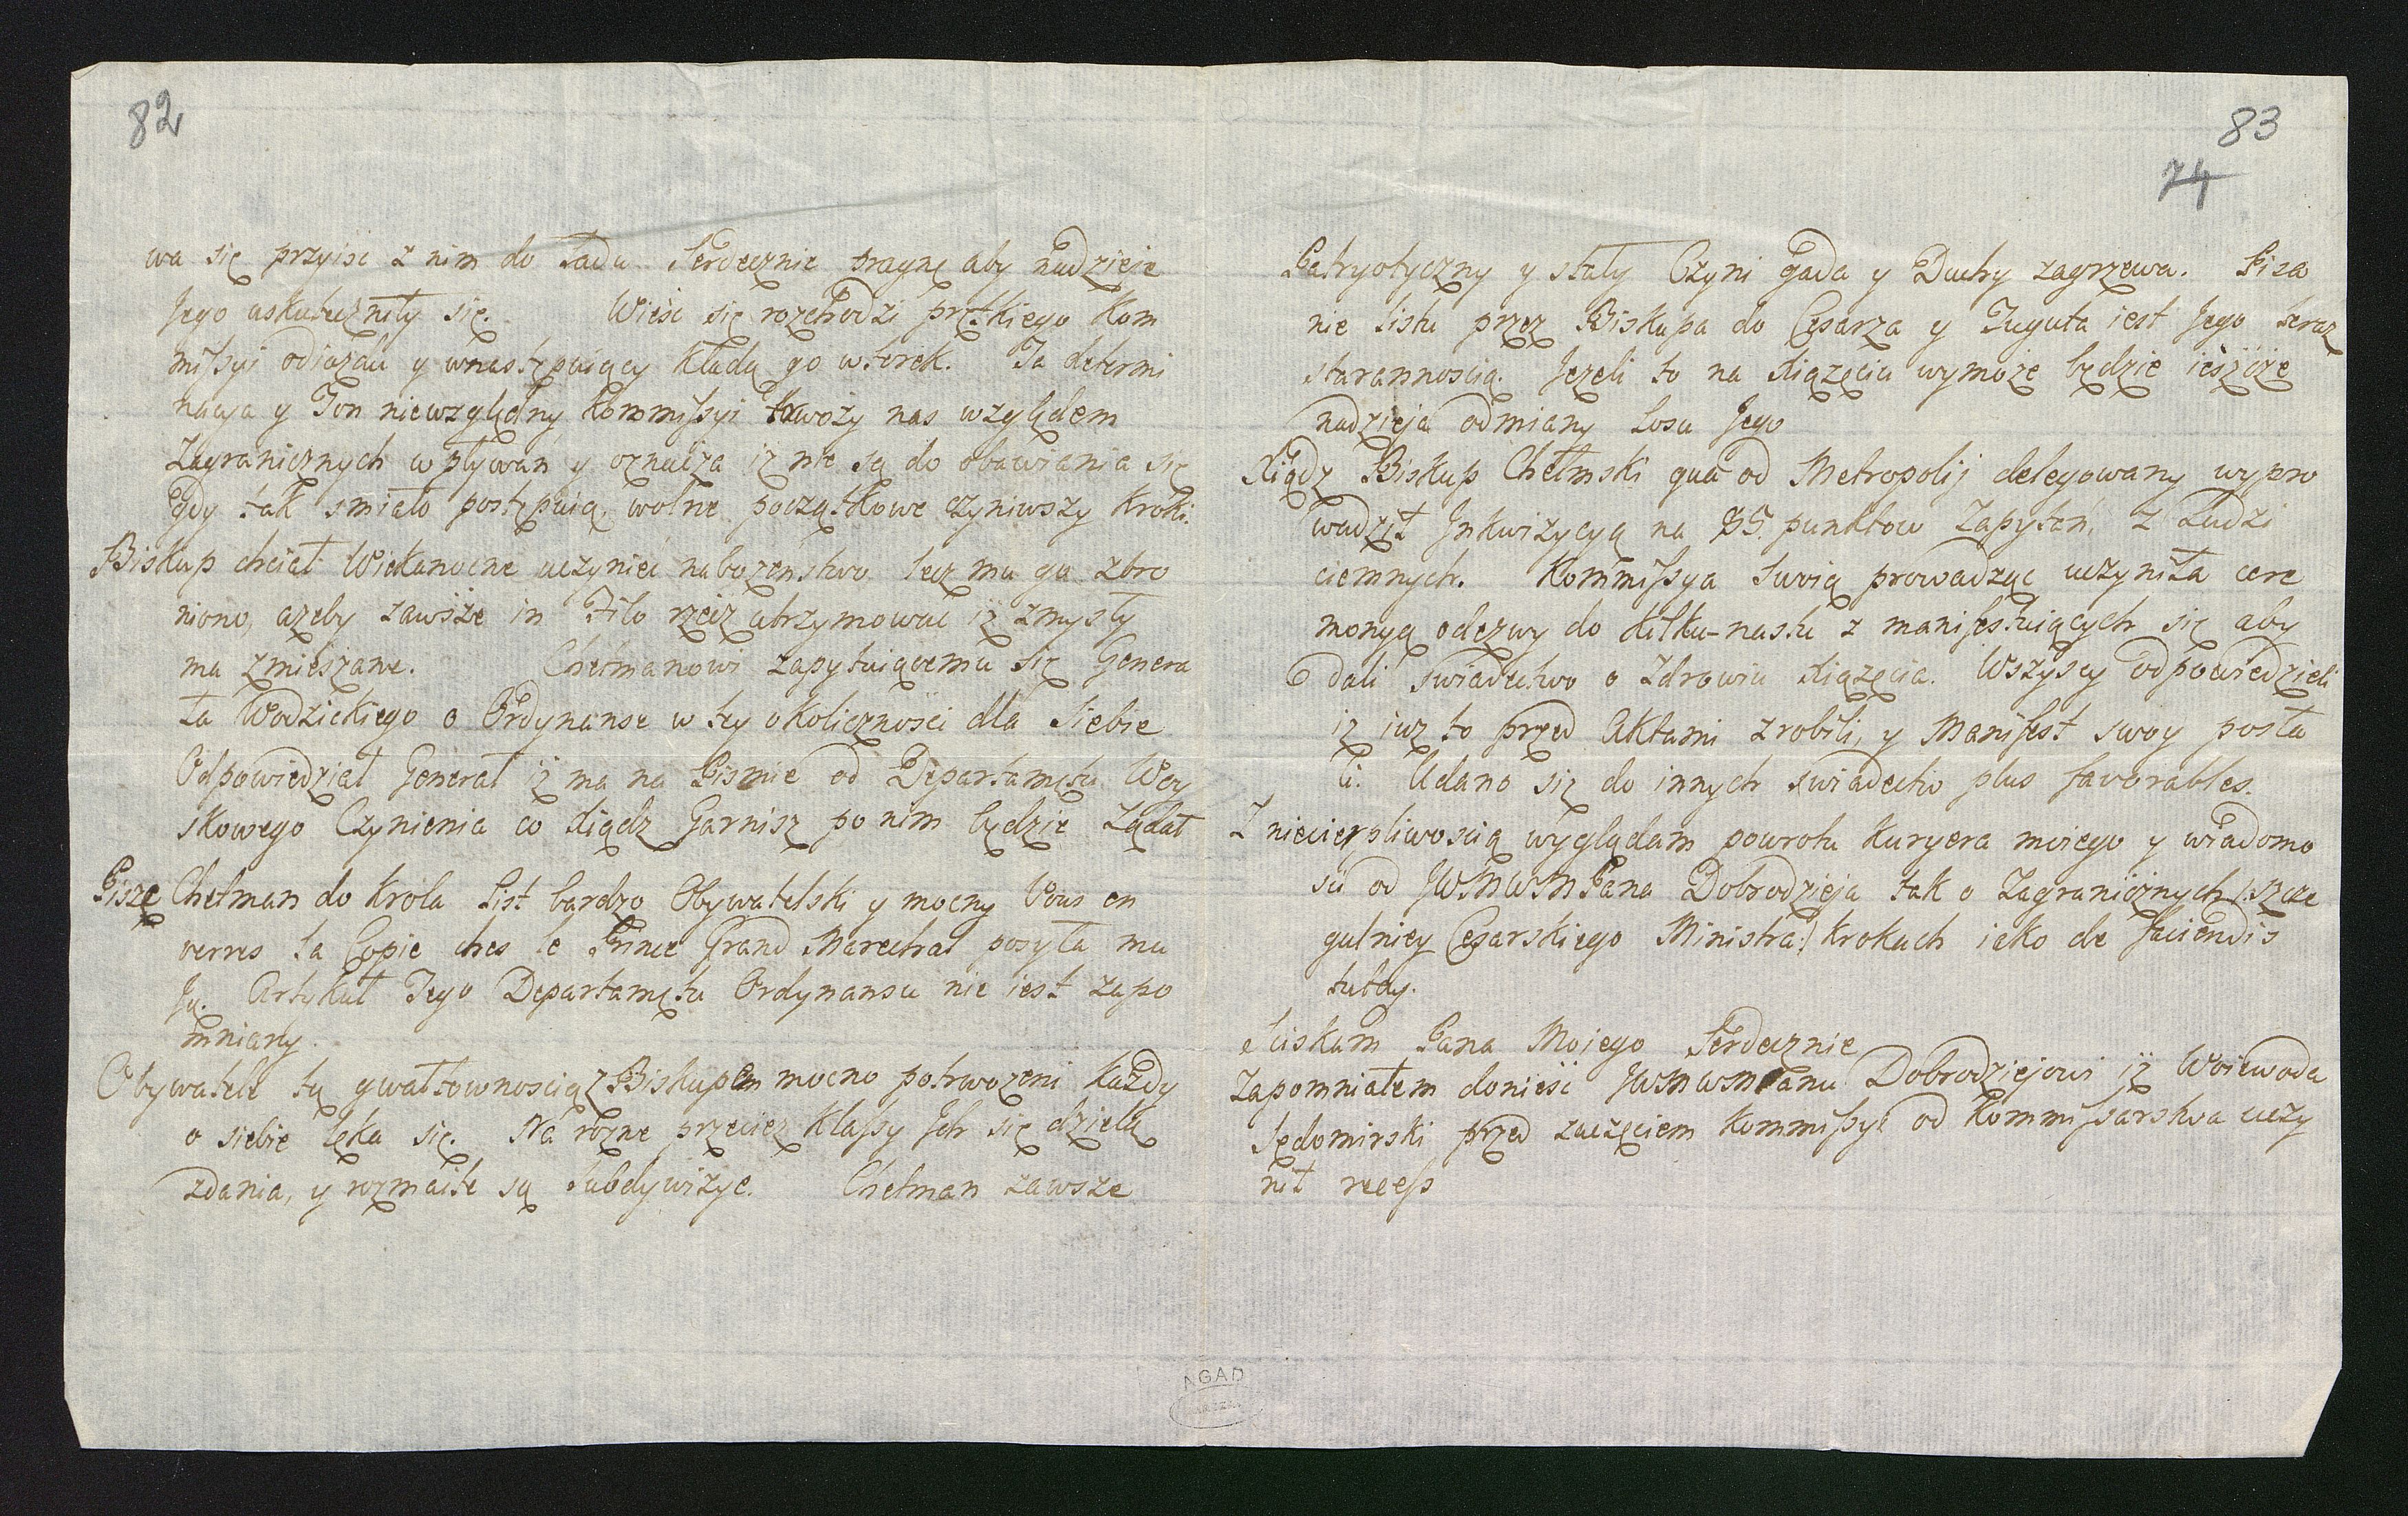 82
wa się przyiść z nim do Ładu Serdecznie pragnę aby nadzieie
Jego uskuteczniły się. Wieść się rozchodzi prętkiego Kom
missyi odiazdu y wnastępuiący kładą go wterek. Ta determi
nacya y Ton niewzględny Kommissyi trwoży nas względem
Zagranicznych wpływań y oznacza iż nie są do obawiania się
gdy tak smiało postępuią, wolne początkowe czyniwszy kroki.
Biskup chciał Wielkanocne uczynieć nabozenstwo lecz mu go zbro
niono, azeby zawsze in Filo rzecz utrzymować iż zmysły
ma zmieszane. Chetmanowi zapytuiącemu się Genera
ła Wodzickiego o Ordynanse w tey okoliczności dla siebie
Odpowiedział Generał iż ma na Pismie od Departamętu Woy
skowego Czynienia co Xiądz Garnisz po nim będzie Ządał
Pisze Chetman do Krola List bardzo Obywatelski y mocny Vous en
verres la Copie ches le Prince Grand Marechal posyła mu
Ją. Artykuł Tego Departamętu Ordynansu nie iest zapo
mniany.
Obywatele tą gwałtownoscią z Biskupem mocno potrwozeni każdy
o siebie lęka się. Na rożne przecież klassy Ich się dzielą
zdania, y rozmaite są subdywizye. Chetman zawsze
83
74
Patryotyczny y stały Czyni gada y Duchy zagrzewa. Pisa
nie listu przez Biskupa do Cesarza y Tuguta iest Jego teraz
starannoscią. Jezeli to na Xiązęciu wymoże będzie ieszcze
nadzieja odmiany Losu Jego
Xiądz Biskup Chełmski qua od Metropolij delegowany wypro
wadził Inkwizycyą na 85. punktow Zapytań, z Ludzi
ciemnych. Kommissya swoią prowadząc uczyniła cere
monyą odezwy do kilku-nastu z manifestuiących się aby
dali swiadectwo o zdrowiu Xiązęcia. Wszyscy odpowiedzieli
iż iuz to przed Aktami zrobili, y Manifest swoy posła
li. Udano się do innych swiadectw plus favorables.
Z niecierpliwoscią wyglądam powrotu kuryera moiego y wiadomo
sci od JWWPana Dobrodzieja tak o Zagranicznych /: szcze
gulniey Cesarskiego Ministra :/ krokach iako de faciendis
tutdy.
Sciskam Pana Mojego Serdecznie
Zapomniałem donieść Dobrodziejowi iż Woiewoda
Sędomirski przed zaczęciem Kommissyi od Kommissarstwa uczy
nił recess
AGAD